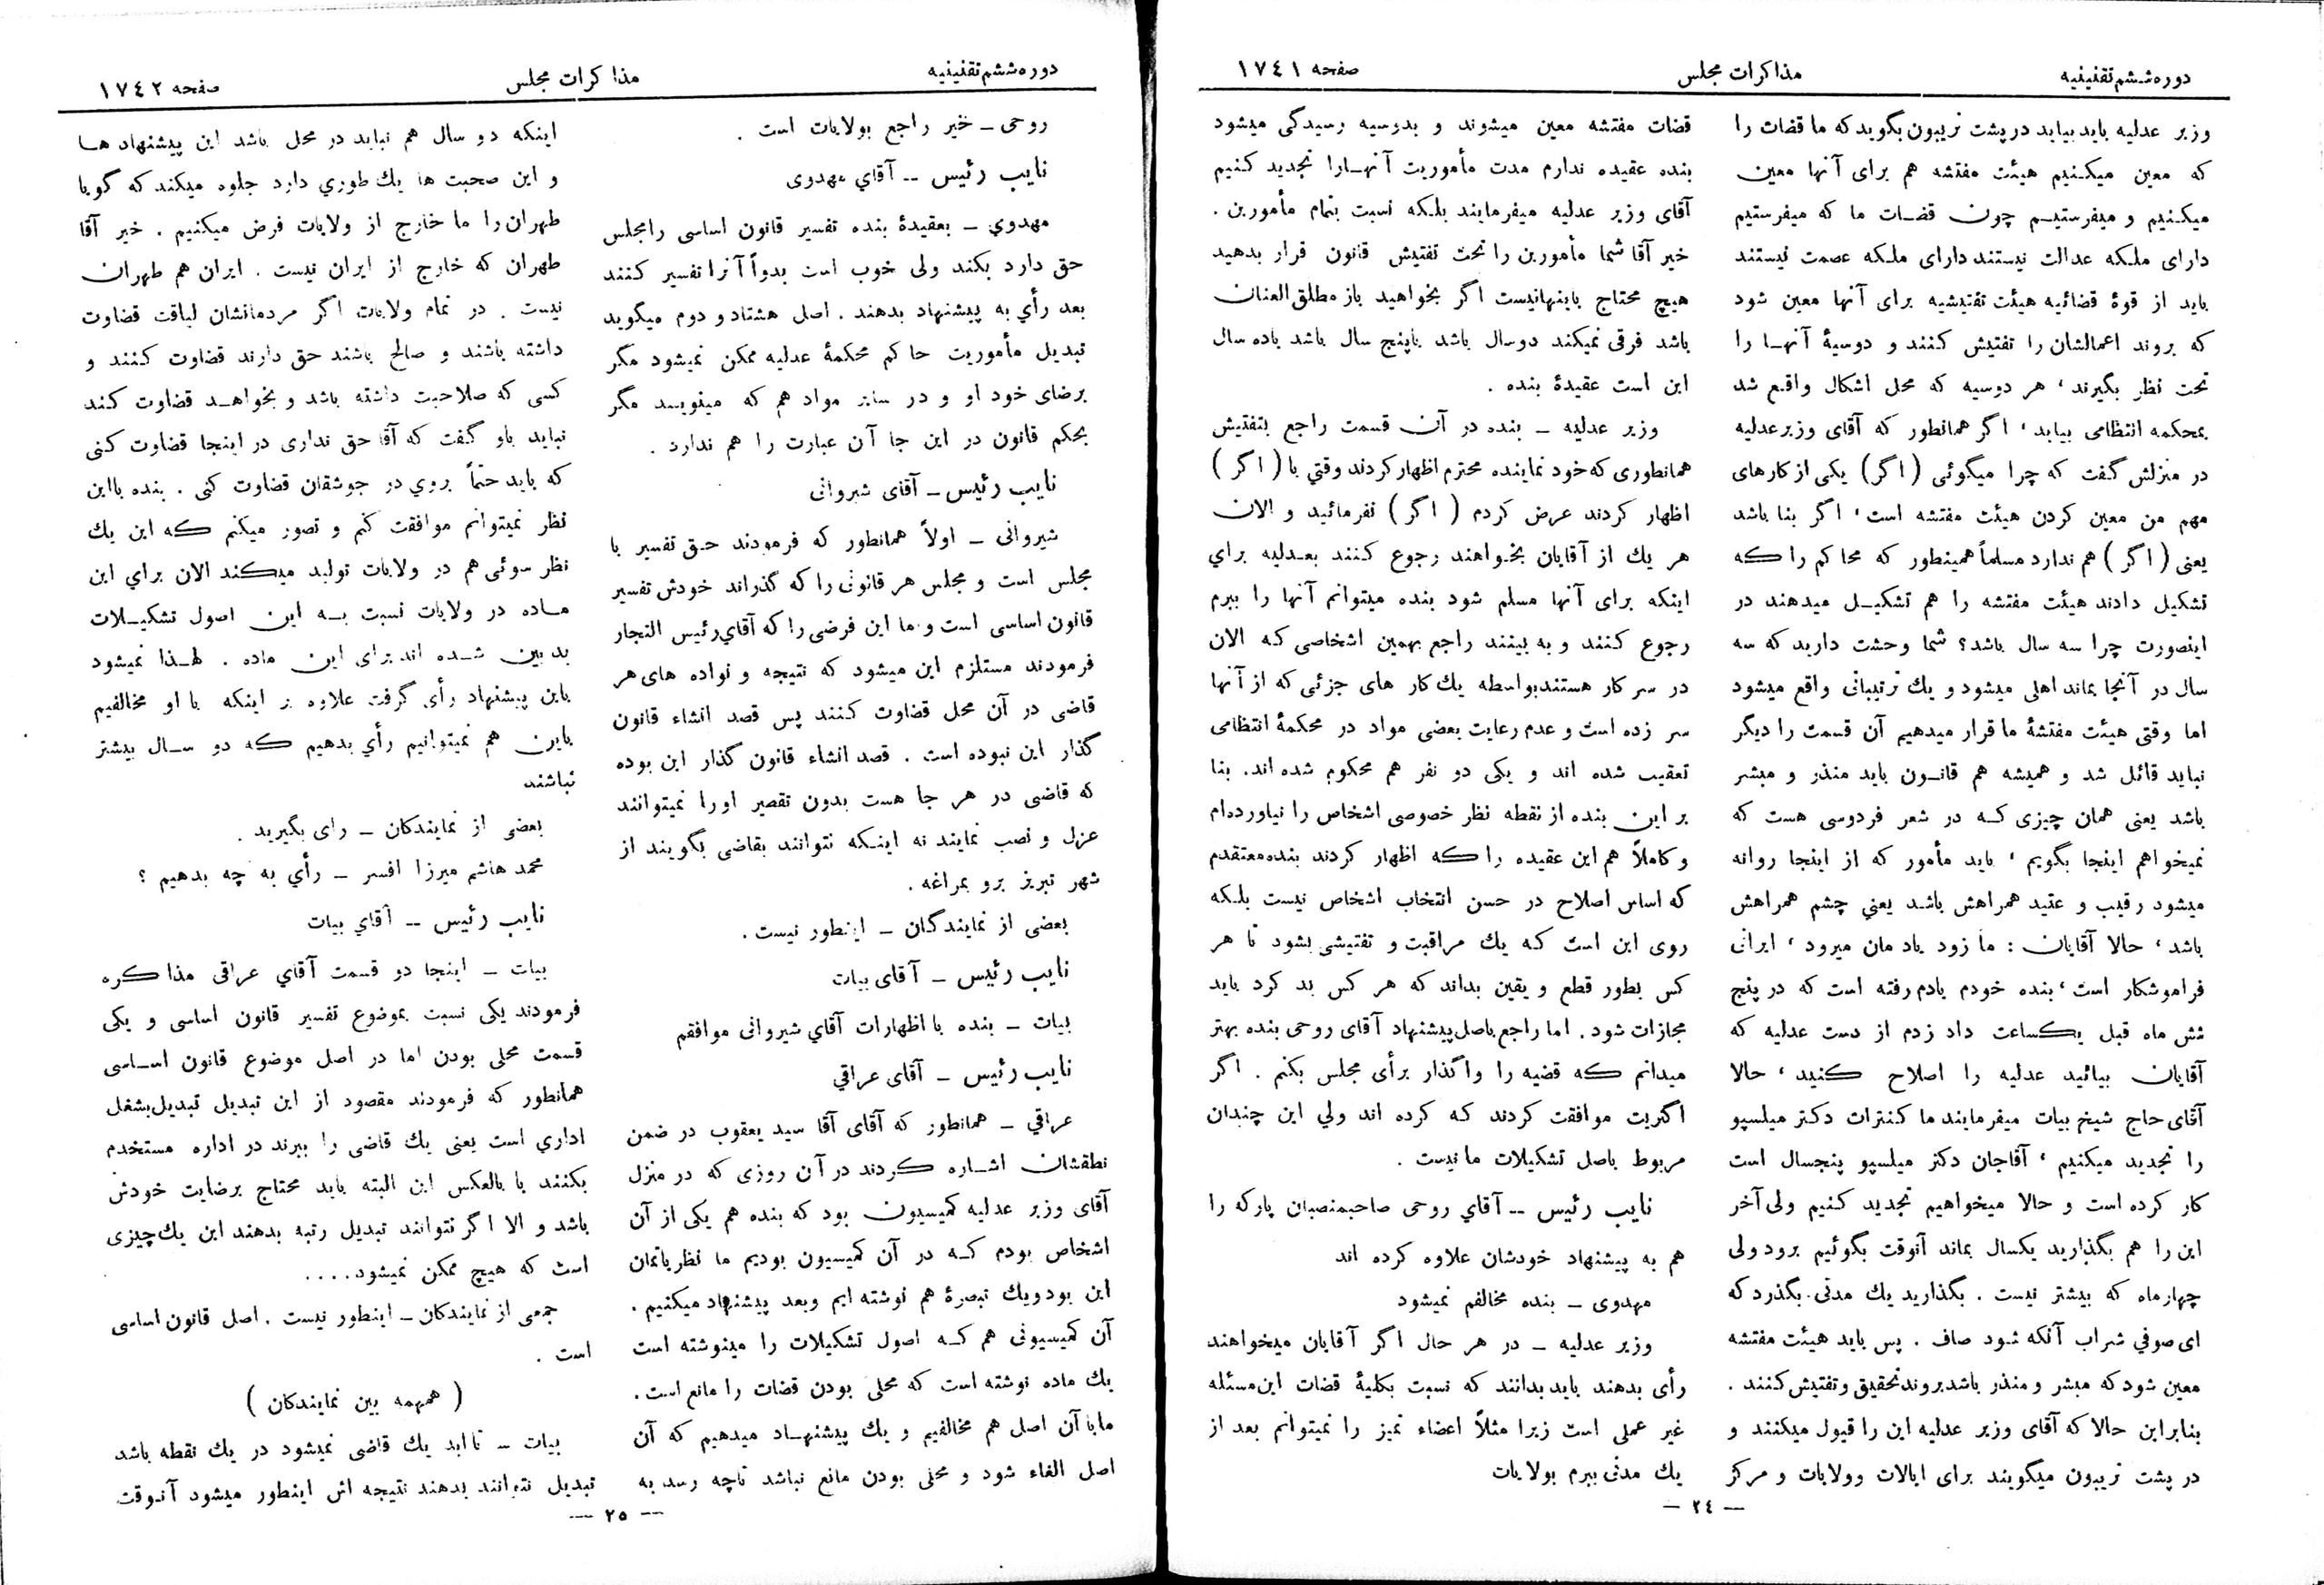 دوره ششم تقنینیه
مذاکرات مجلس
صفحه ۱۷۴۱
وزیر عدلیه باید بیاید در پشت تریبون بگوید که ما قضات را
که معین میکنیم هیئت مفتشه هم برای آنها معین
میکنیم و میفرستیم چون قضات ما که میفرستیم
دارای ملکه عدالت نیستند دارای ملکه عصمت نیستند
باید از قوهٔ قضائیه هیئت تفتیشیه برای آنها معین شود
که بروند اعمالشان را تفتیش کنند و دوسیهٔ آنها را
تحت نظر بگیرند ، هر دوسیه که محل اشکال واقع شد
بمحکمه انتظامی بیاید ، اگر همانطور که آقای وزیر عدلیه
در منزلش گفت که چرا میگوئی (اگر) یکی از کارهای
مهم من معین کردن هیئت مفتشه است ، اگر بنا باشد
یعنی (اگر) هم ندارد مسلماً همینطور که محاکم را که
تشکیل دادند هیئت مفتشه را هم تشکیل میدهند در
اینصورت چرا سه سال باشد؟ شما وحشت دارید که سه
سال در آنجا بماند اهلی میشود و یك ترتیباتی واقع میشود
اما وقتی هیئت مفتشهٔ ما قرار میدهیم آن قسمت را دیگر
نباید قائل شد و همیشه هم قانون باید منذر و مبشر
باشد یعنی همان چیزی که در شعر فردوسی هست که
نمیخواهم اینجا بگویم ، باید مأمور که از اینجا روانه
میشود رقیب و عتید همراهش باشد یعنی چشم همراهش
باشد ، حالا آقایان : ما زود یادمان میرود ، ایرانی
فراموشکار است ، بنده خودم یادم رفته است که در پنج
شش ماه قبل یکساعت داد زدم از دست عدلیه که
آقایان بیائید عدلیه را اصلاح کنید ، حالا
آقای حاج شیخ بیات میفرمایند ما کنترات دکتر میلسپو
را تجدید میکنیم ، آقاجان دکتر میلسپو پنجسال است
کار کرده است و حالا میخواهیم تجدید کنیم ولی آخر
این را هم بگذارید یکسال بماند آنوقت بگوئیم برود ولی
چهارماه که بیشتر نیست . بگذارید یك مدتی بگذرد که
ای صوفی شراب آنکه شود صاف . پس باید هیئت مفتشه
معین شود که مبشر و منذر باشد بروند تحقیق و تفتیش کنند .
بنابراین حالا که آقای وزیر عدلیه این را قبول میکنند و
در پشت تریبون میگویند برای ایالات وولایات و مرکز
قضات مفتشه معین میشوند و بدوسیه رسیدگی میشود
بنده عقیده ندارم مدت مأموریت آنها را تجدید کنیم
آقای وزیر عدلیه میفرمایند بلکه نسبت بتمام مأمورین .
خیر آقا شما مأمورین را تحت تفتیش قانون قرار بدهید
هیچ محتاج باینهانیست اگر بخواهید باز مطلق العنان
باشد فرقی نمیکند دوسال باشد یاپنج سال باشد یاده سال
این است عقیدهٔ بنده .
وزیر عدلیه ـ بنده در آن قسمت راجع بتفتیش
همانطوری که خود نماینده محترم اظهار کردند وقتی با (اگر)
اظهار کردند عرض کردم (اگر) نفرمائید و الان
هر یك از آقایان بخواهند رجوع کنند بعدلیه برای
اینکه برای آنها مسلم شود بنده میتوانم آنها را ببرم
رجوع کنند و به بینند راجع بهمین اشخاصی که الان
در سر کار هستند بواسطه یك کار های جزئی که از آنها
سر زده است و عدم رعایت بعضی مواد در محکمهٔ انتظامی
تعقیب شده اند و یکی دو نفر هم محکوم شده اند . بنا
بر این بنده از نقطه نظر خصوصی اشخاص را نیاورده‌ام
و کاملاً هم این عقیده را که اظهار کردند بنده معتقدم
که اساس اصلاح در حسن انتخاب اشخاص نیست بلکه
روی این است که یك مراقبت و تفتیشی بشود تا هر
کس بطور قطع و یقین بداند که هر کس بد کرد باید
مجازات شود . اما راجع باصل پیشنهاد آقای روحی بنده بهتر
میدانم که قضیه را واگذار برأی مجلس بکنم . اگر
اکثریت موافقت کردند که کرده اند ولی این چندان
مربوط باصل تشکیلات ما نیست .
نایب رئیس ــ آقاي روحی صاحبمنصبان پارکه را
هم به پیشنهاد خودشان علاوه کرده اند
مهدوی ـ بنده مخالفم نمیشود
وزیر عدلیه ـ در هر حال اگر آقایان میخواهند
رأی بدهند باید بدانند که نسبت بکلیهٔ قضات این مسئله
غیر عملی است زیرا مثلاً اعضاء تمیز را نمیتوانم بعد از
یك مدتی ببرم بولایات
— ۲٤ —
دوره ششم تقنینیه
مذاکرات مجلس
صفحه ۱۷٤۲
روحی ـ خیر راجع بولایات است .
نایب رئیس ــ آقاي مهدوی
مهدوي ـ بعقیدهٔ بنده تفسیر قانون اساسی را مجلس
حق دارد بکند ولی خوب است بدواً آنرا تفسیر کنند
بعد رأي به پیشنهاد بدهند . اصل هشتاد و دوم میگوید
تبدیل مأموریت حاکم محکمهٔ عدلیه ممکن نمیشود مگر
برضای خود او و در سایر مواد هم که مینویسد مگر
بحکم قانون در این جا آن عبارت را هم ندارد .
نایب رئیس ـ آقای شیروانی
شیروانی ـ اولاً همانطور که فرمودند حق تفسیر با
مجلس است و مجلس هر قانونی را که گذراند خودش تفسیر
قانون اساسی است و ما این فرضی را که آقاي رئیس التجار
فرمودند مستلزم این میشود که نتیجه و نواده های هر
قاضی در آن محل قضاوت کنند پس قصد انشاء قانون
گذار این نبوده است . قصد انشاء قانون گذار این بوده
که قاضی در هر جا هست بدون تقصیر اورا نمیتوانند
عزل و نصب نمایند نه اینکه نتوانند بقاضی بگویند از
شهر تبریز برو بمراغه .
بعضی از نمایندگان ـ اینطور نیست .
نایب رئیس ـ آقای بیات
بیات ـ بنده با اظهارات آقاي شیروانی موافقم
نایب رئیس ـ آقای عراقي
عراقي ـ همانطور که آقای آقا سید یعقوب در ضمن
نطقشان اشاره کردند در آن روزی که در منزل
آقای وزیر عدلیه کمیسیون بود که بنده هم یکی از آن
اشخاص بودم که در آن کمیسیون بودیم ما نظریاتمان
این بود ویك تبصرهٔ هم نوشته ایم وبعد پیشنهاد میکنیم .
آن کمیسیونی هم که اصول تشکیلات را مینوشته است
یك ماده نوشته است که محلی بودن قضات را مانع است .
مابا آن اصل هم مخالفیم و یك پیشنهاد میدهیم که آن
اصل الغاء شود و محلی بودن مانع نباشد تاچه رسد به
اینکه دو سال هم نباید در محل باشد این پیشنهاد ها
و این صحبت ها یك طوري دارد جلوه میکند که گویا
طهران را ما خارج از ولایات فرض میکنیم . خیر آقا
طهران که خارج از ایران نیست . ایران هم طهران
نیست . در تمام ولایات اگر مردمانشان لیاقت قضاوت
داشته باشند و صالح باشند حق دارند قضاوت کنند و
کسی که صلاحیت داشته باشد و بخواهد قضاوت کند
نباید باو گفت که آقا حق نداری در اینجا قضاوت کنی
که باید حتماً بروي در جوشقان قضاوت کنی . بنده بااین
نظر نمیتوانم موافقت کنم و تصور میکنم که این یك
نظر سوئی هم در ولایات تولید میکند الان براي این
ماده در ولایات نسبت به این اصول تشکیلات
بدبین شده اند برای این ماده . لهذا نمیشود
باین پیشنهاد رأی گرفت علاوه بر اینکه با او مخالفیم
باین هم نمیتوانیم رأي بدهیم که دو سال بیشتر
نباشند
بعضی از نمایندکان ـ رای بگیرید .
محمد هاشم میرزا افسر ـ رأي به چه بدهیم ؟
نایب رئیس ــ آقاي بیات
بیات ـ اینجا دو قسمت آقاي عراقی مذاکره
فرمودند یکی نسبت بموضوع تفسیر قانون اساسی و یکی
قسمت محلی بودن اما در اصل موضوع قانون اساسی
همانطور که فرمودند مقصود از این تبدیل تبدیل بشغل
اداري است یعنی یك قاضی را ببرند در اداره مستخدم
بکنند یا بالعکس این البته باید محتاج برضایت خودش
باشد و الا اگر نتوانند تبدیل رتبه بدهند این یك چیزی
است که هیچ ممکن نمیشود....
جمعی از نمایندکان ـ اینطور نیست . اصل قانون اساسی
است .
( همهمه بین نمایندکان )
بیات ـ تا ابد یك قاضی نمیشود در یك نقطه باشد
تبدیل نتوانند بدهند نتیجه اش اینطور میشود آنوقت
— ۲٥ —